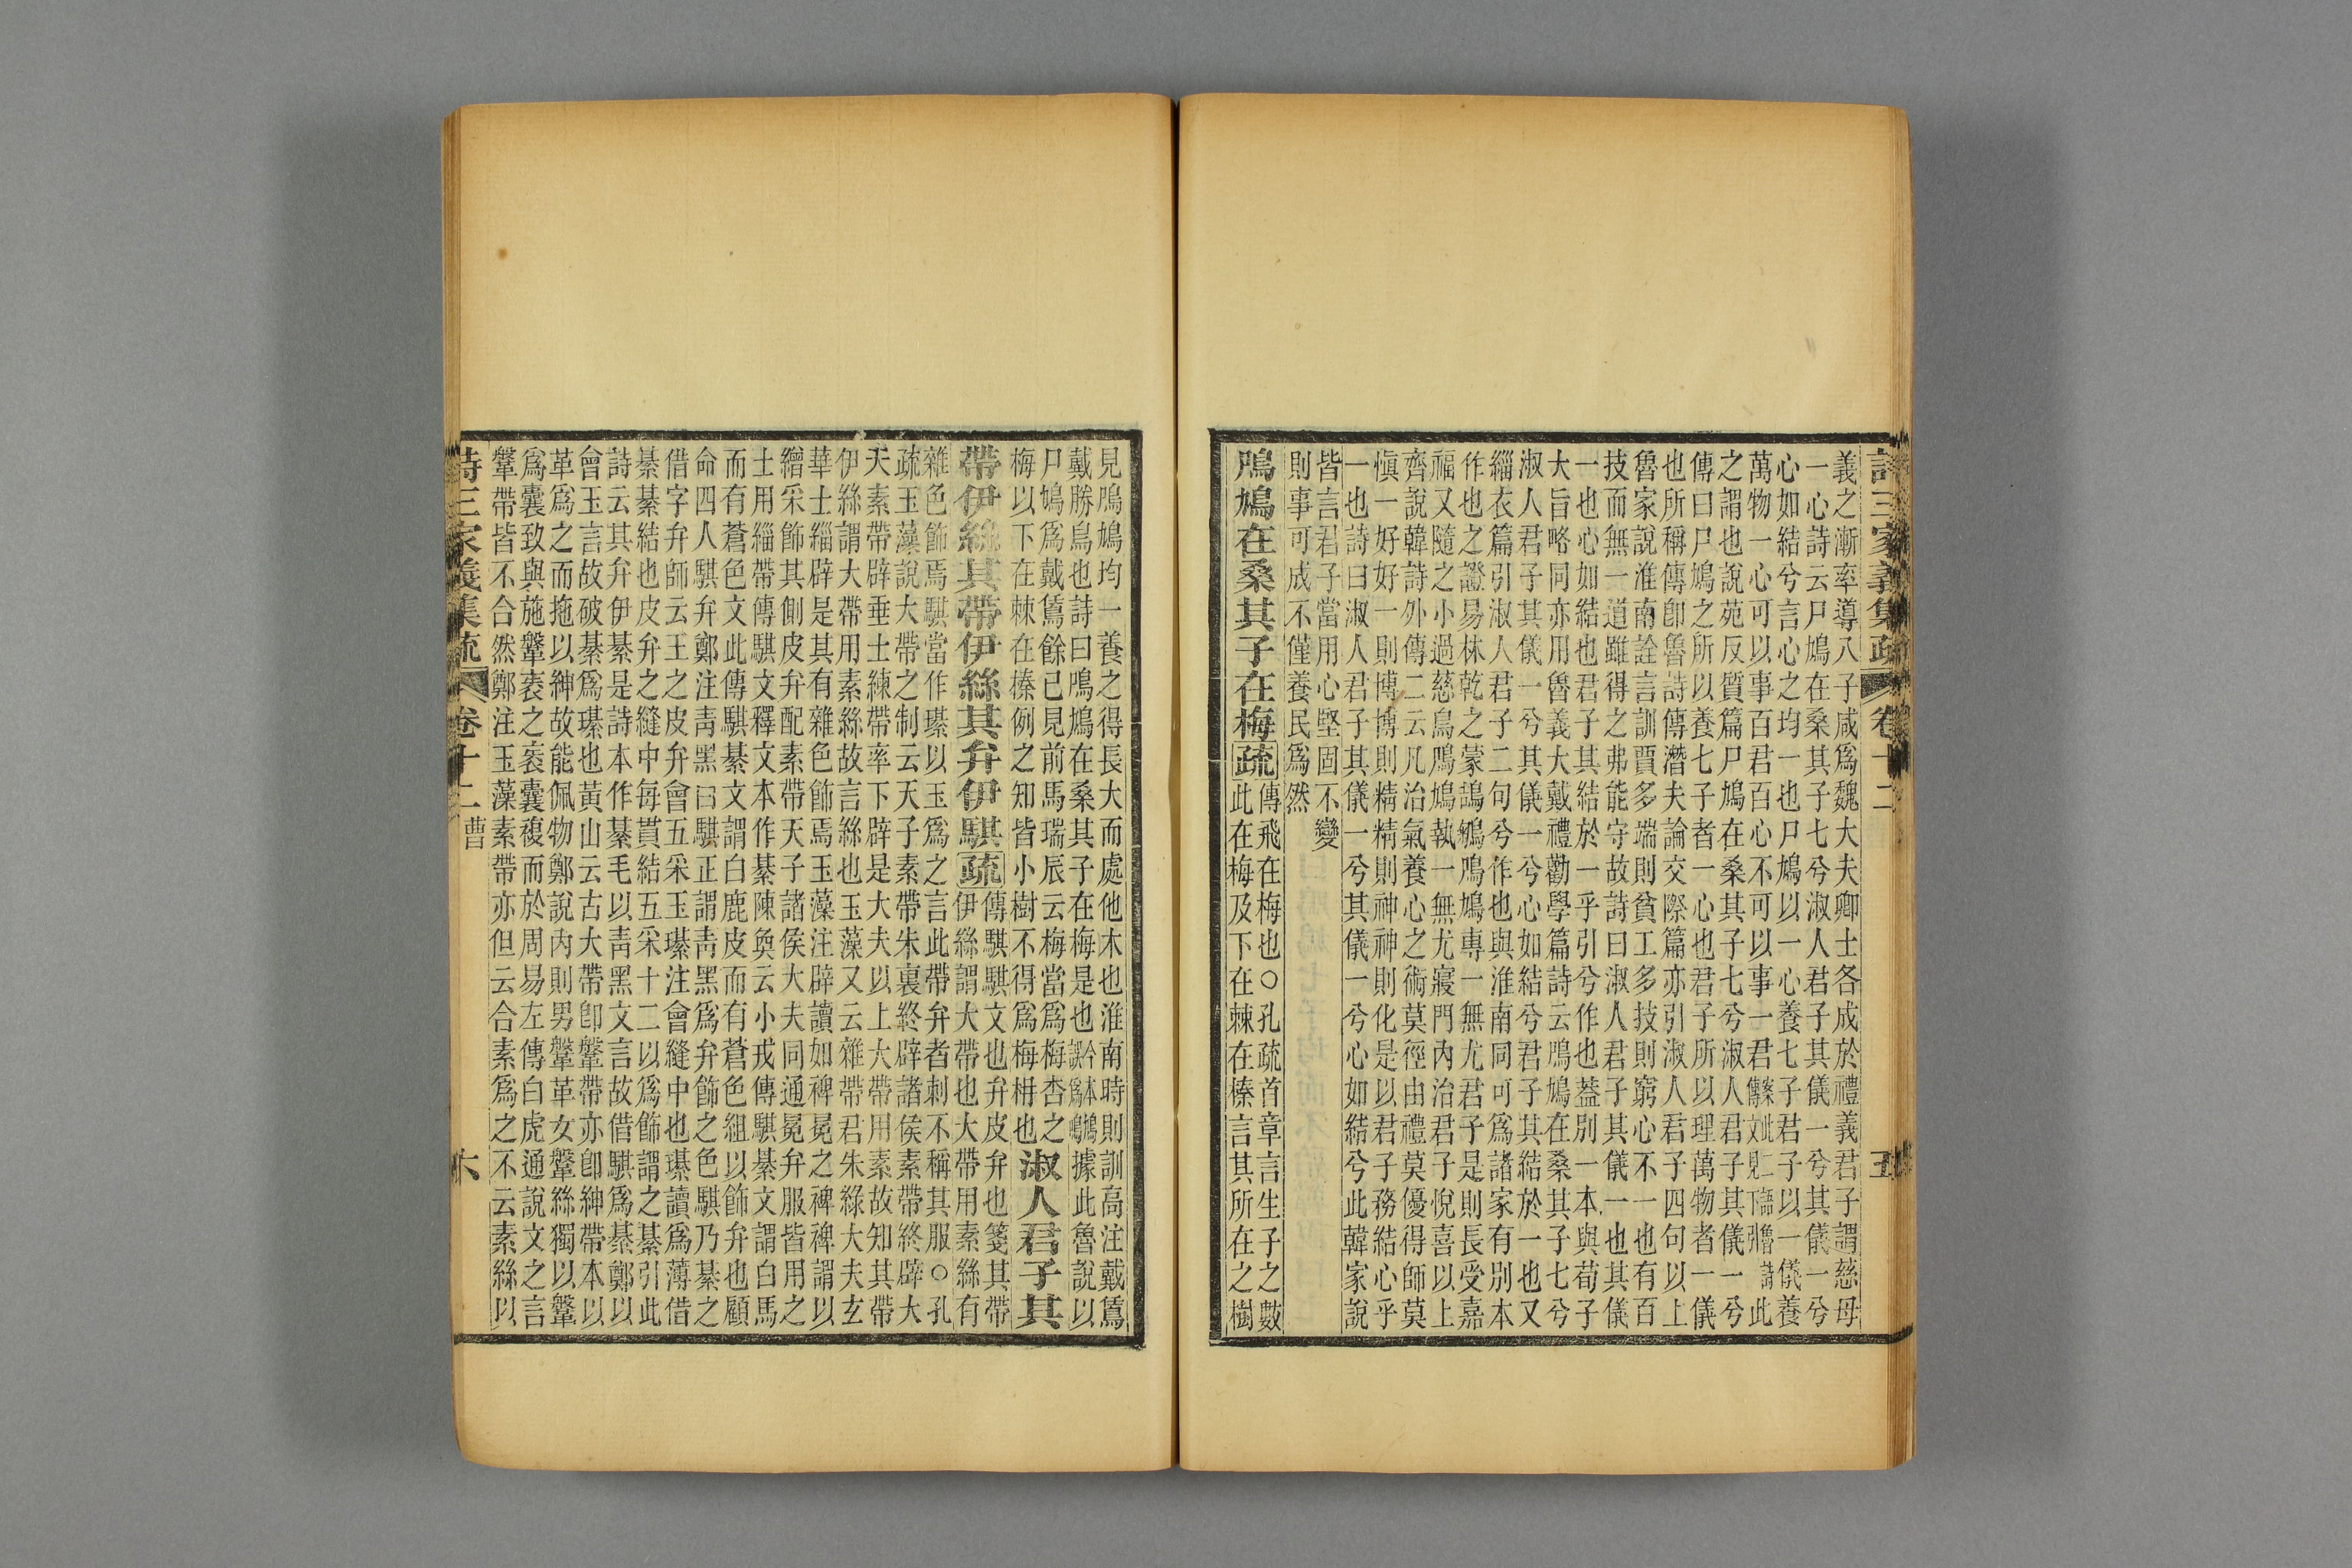 詩三家義集疏 卷十二 五
義之漸率導八子咸爲魏大夫卿士各成於禮義君子謂慈母
一心詩云尸鳩在桑其子七兮淑人君子其儀一兮其儀一兮
心如結兮言心之均一也尸鳩以一心養七子君子以一儀養
萬物一心可以事百君百心不可以事一君此
之謂也說苑反質篇尸鳩在桑其子七兮淑人君子其儀一兮
傳曰尸鳩之所以養七子者一心也君子所以理萬物者一儀
也所稱傳卽魯詩傳潛夫論交際篇亦引淑人君子四句以上
魯家說淮南詮言訓賈多端則貧工多技則窮心不一也有百
技而無一道雖得之弗能守故詩曰淑人君子其儀一也其儀
一也心如結也君子其結於一乎引兮作也蓋別一本與荀子
大旨略同亦用魯義大戴禮勸學篇詩云鳲鳩在桑其子七兮
淑人君子其儀一兮其儀一兮心如結兮君子其結於一也又
緇衣篇引淑人君子二句兮作也與淮南同可爲諸家有別本
作也之證易林乾之蒙鵠鵃鳲鳩專一無尤君子是則長受嘉
福又隨之小過慈鳥鳲鳩執一無尤寢門內治君子悅喜以上
齊說韓詩外傳二云凡治氣養心之術莫徑由禮莫優得師莫
愼一好好一則博博則精精則神神則化是以君子務結心乎
一也詩曰淑人君子其儀一兮其儀一兮心如結兮此韓家說
皆言君子當用心堅固不變
則事可成不僅養民爲然
鳲鳩在桑其子在梅疏傳飛在梅也○孔疏首章言生子之數
此在梅及下在棘在榛言其所在之樹
見鳲鳩均一養之得長大而處他木也淮南時則訓高注戴鵀
戴勝鳥也詩曰鳴鳩在桑其子在梅是也今本鳲誤爲鳴據此魯說以
尸鳩爲戴鵀餘已見前馬瑞辰云梅當爲梅杏之
梅以下在棘在榛例之知皆小樹不得爲梅柟也淑人君子其
帶伊絲其帶伊絲其弁伊騏疏傳騏騏文也弁皮弁也箋其帶
伊絲謂大帶也大帶用素絲有
雜色飾焉騏當作璂以玉爲之言此帶弁者刺不稱其服○孔
疏玉藻說大帶之制云天子素帶朱裏終辟諸侯素帶終辟大
夫素帶辟垂士練帶率下辟是大夫以上大帶用素故知其帶
伊絲謂大帶用素絲故言絲也玉藻又云雜帶君朱綠大夫玄
華士緇辟是其有雜色飾焉玉藻注辟讀如裨冕之裨裨謂以
繒采飾其側皮弁配素帶天子諸侯大夫同通冕弁服皆用之
士用緇帶傳騏文釋文本作綦陳奐云小戎傳騏綦文謂白馬
而有蒼色文此傳騏綦文謂白鹿皮而有蒼色組以飾弁也顧
命四人騏弁鄭注靑黑曰騏正謂靑黑爲弁飾之色騏乃綦之
借字弁師云王之皮弁會五采玉璂注會縫中也璂讀爲薄借
綦綦結也皮弁之縫中每貫結五采十二以爲飾謂之綦引此
詩云其弁伊綦是詩本作綦毛以靑黑文言故借騏爲綦鄭以
會玉言故破綦爲璂也黃山云古大帶卽鞶帶亦卽紳帶本以
革爲之而拖以紳故能佩物鄭說內則男鞶革女鞶絲獨以鞶
爲囊致與施鞶袠之袠囊複而於周易左傳白虎通說文之言
鞶帶皆不合然鄭注玉藻素帶亦但云合素爲之不云素絲以
詩三家義集疏 卷十二 曹 六